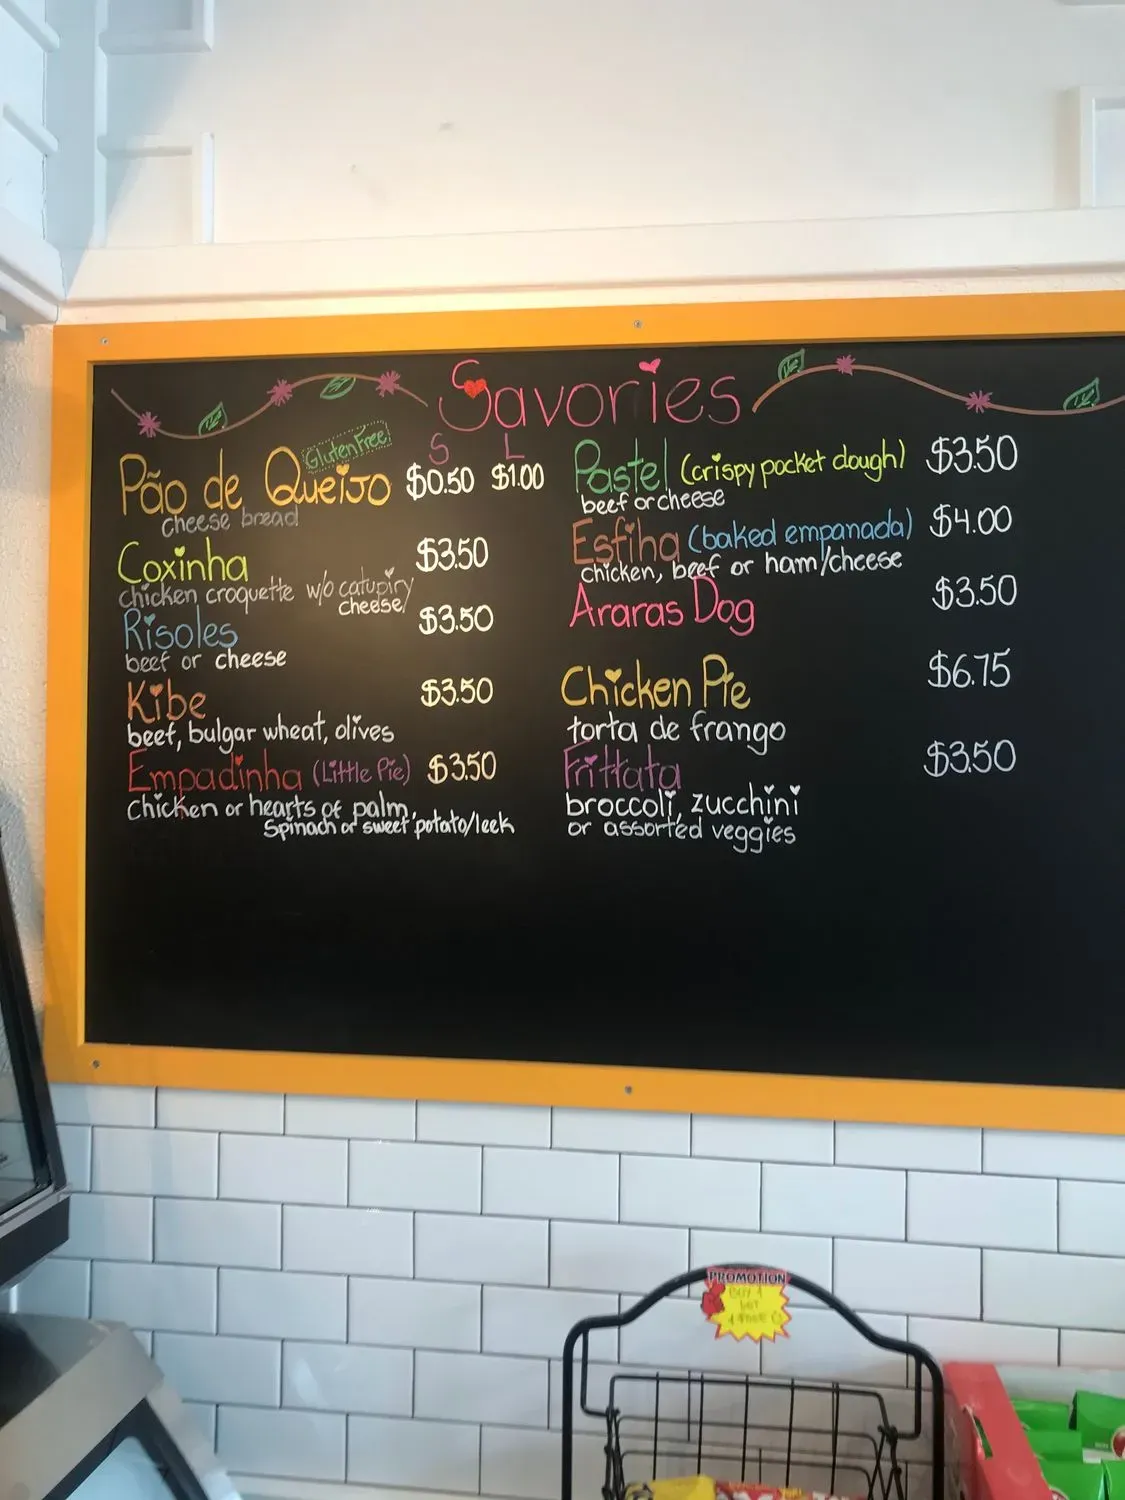 Savories
Gluten Free
S L
Pão de Queijo $0.50 $1.00
cheese bread
Coxinha $3.50
chicken croquette w/o catupiry
cheese
Risoles $3.50
beef or cheese
Kibe $3.50
beef, bulgar wheat, olives
Empadinha (Little Pie) $3.50
chicken or hearts of palm,
spinach or sweet potato/leek
Pastel (crispy pocket dough) $3.50
beef or cheese
Esfiha (baked empanada) $4.00
chicken, beef or ham/cheese
Araras Dog $3.50
Chicken Pie $6.75
torta de frango
Frittata $3.50
broccoli, zucchini
or assorted veggies
PROMOTION
BUY 1
GET
1 FREE